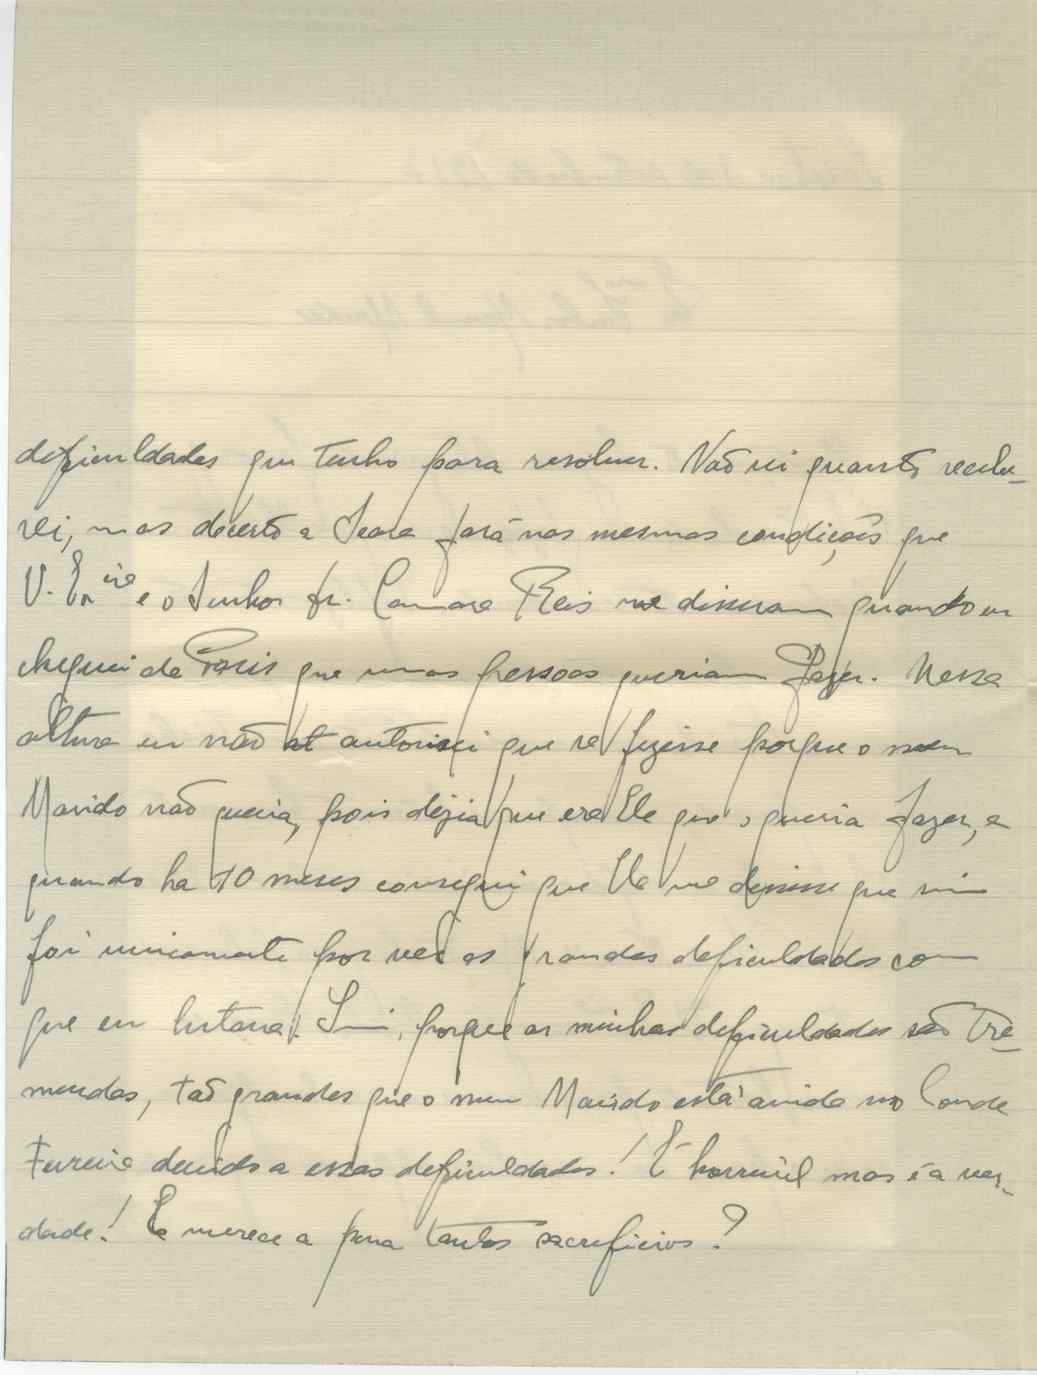 deficuldades que tenho para resolver. Não sei quanto recebe-
rei, mas decerto a Seara fará nas mesmas condições que
V. Ex.cia e o Senhor Dr. Camara Reis me disseram quando eu
cheguei de Paris que umas pessoas queriam fazer. Nessa
altura eu não autorisei que se fizesse porque o meu
Marido não queria, pois dizia que era Ele que o queria fazer, e
quando ha 10 meses consegui que Ele me dissesse que sim
foi unicamente por ver as grandes deficuldades com
que eu lutava! Sim, porque as minhas deficuldades são tre-
mendas, tão grandes que o meu Marido está ainda no Conde
Ferreira devido a essas deficuldades! É horrivel mas é a ver-
dade! E merece a pena tantos sacreficios?